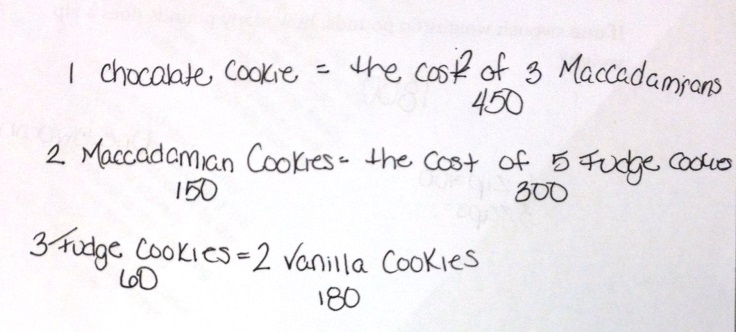 1 chocalate Cookie = the cost of 3 Maccadamians
450
2 Maccadamian Cookies = the cost of 5 Fudge Cookies
150 300
3 Fudge Cookies = 2 Vanilla Cookies
60
180